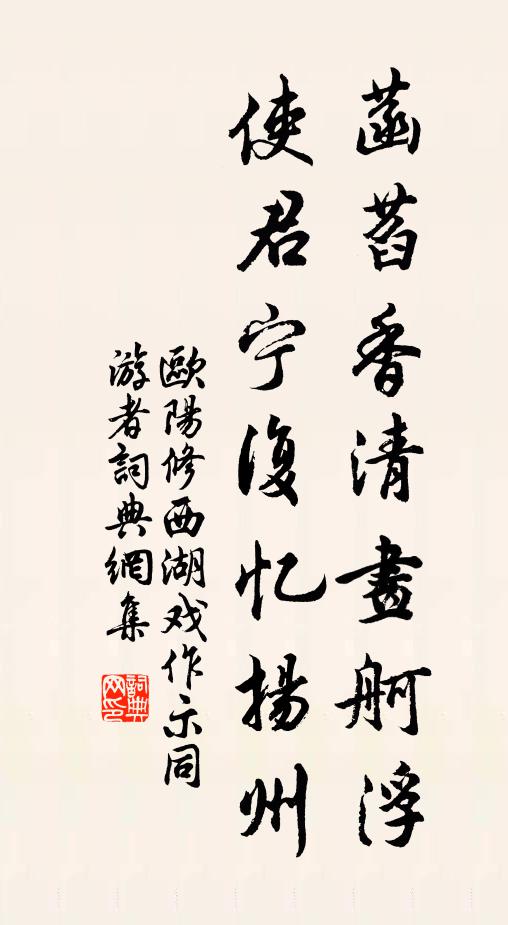 菡萏香清畫舸浮
使君宁復忆揚州
歐陽修西湖戏作示同
游者詞典網集
詞典
网印